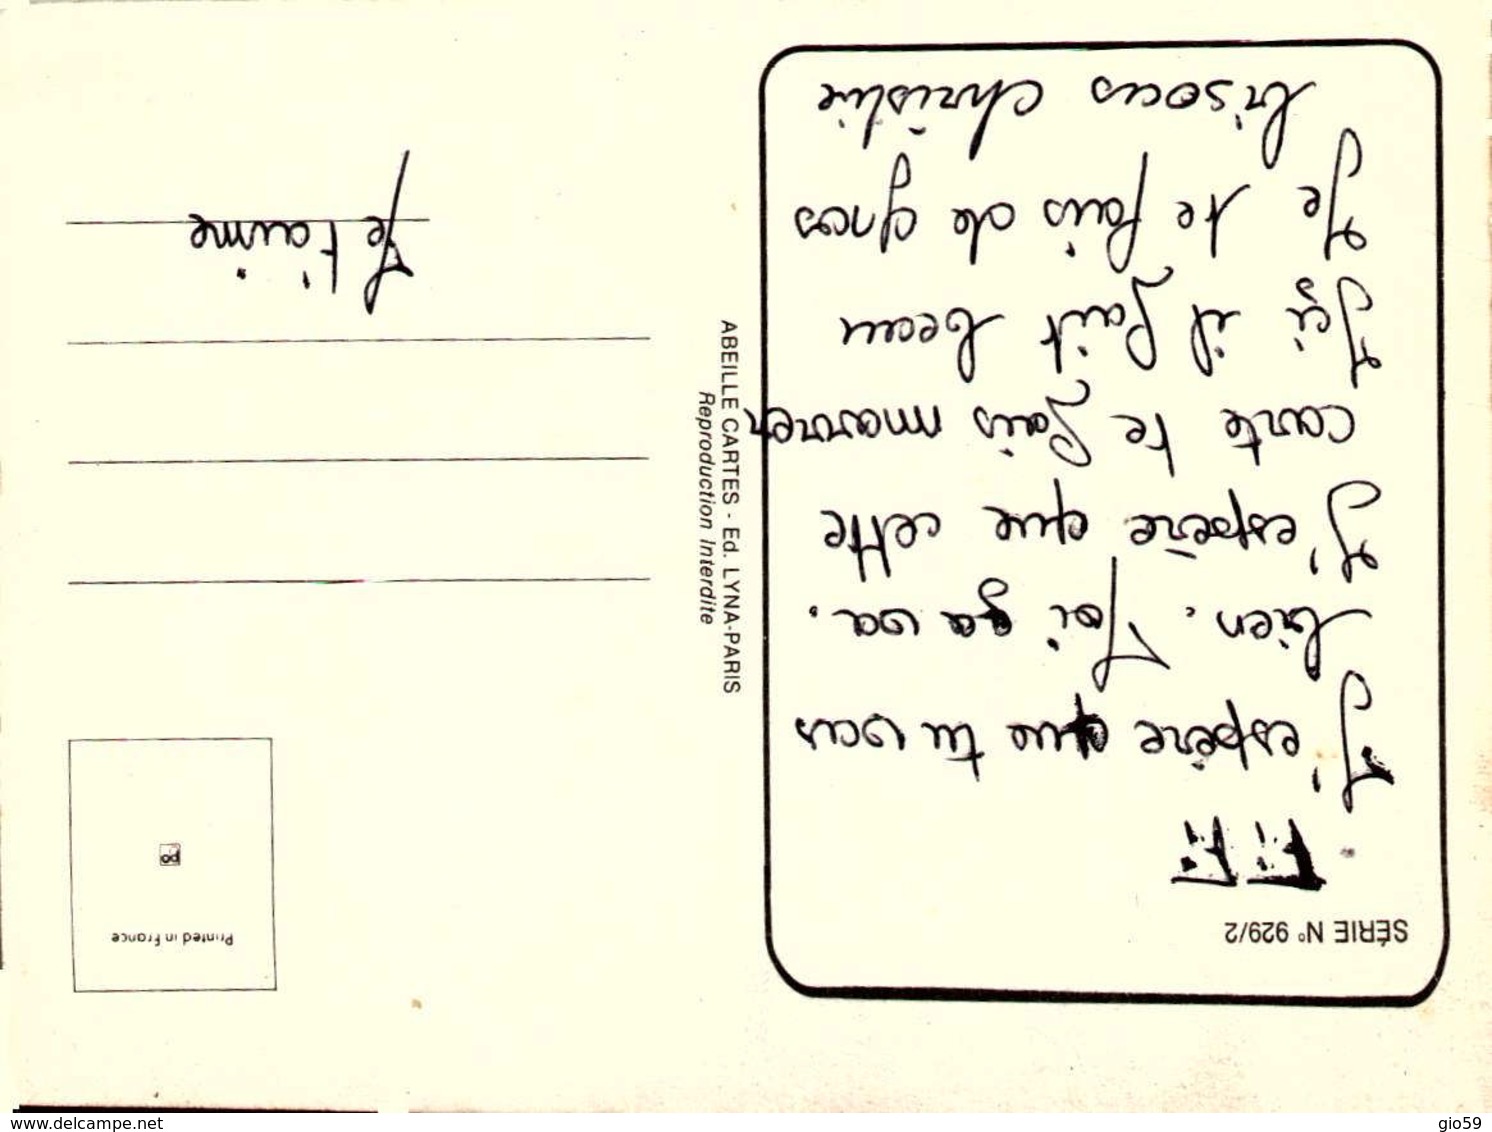 SÉRIE N° 929/2
FiFi
J'espère que tu vas
bien. Toi ça va.
J'espère que cette
carte te fais marrer
Ici il fait beau
Je te fais de gros
bisous christie
ABEILLE CARTES - Ed. LYNA-PARIS
Reproduction Interdite
Printed in France
Je t'aime
www.delcampe.net
gio59